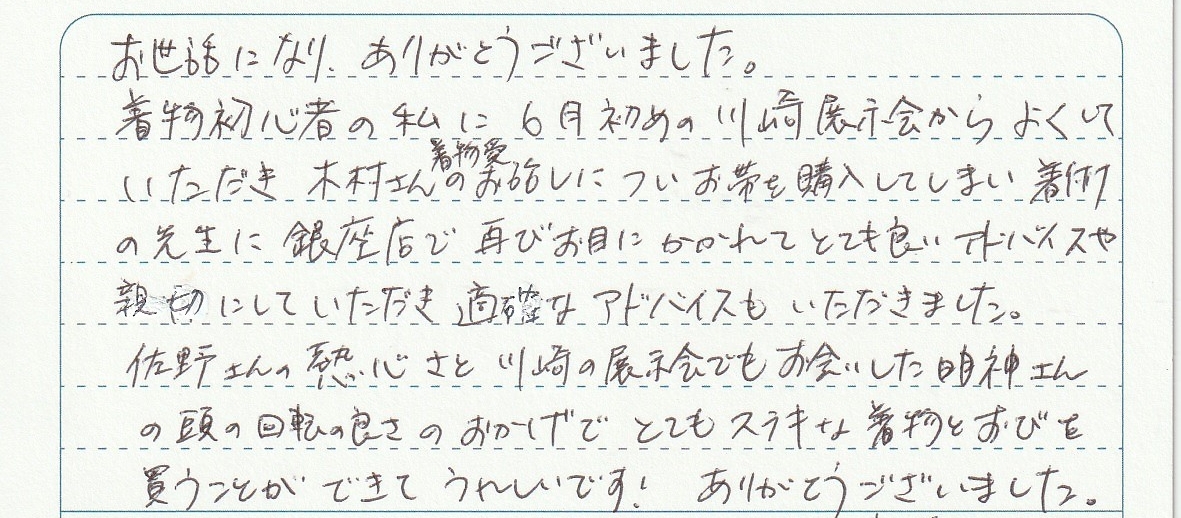 お世話になり、ありがとうございました。
着物初心者の私に6月初めの川崎展示会からよくして
いただき 木村さんの着物愛お話しについお帯を購入してしまい 着付け
の先生に銀座店で再びお目にかかれてとても良いアドバイスや
親切にしていただき 適確なアドバイスもいただきました。
佐野さんの熱心さと川崎の展示会でもお会いした明神さん
の頭の回転の良さのおかげでとてもステキな着物とおびを
買うことができてうれしいです! ありがとうございました。